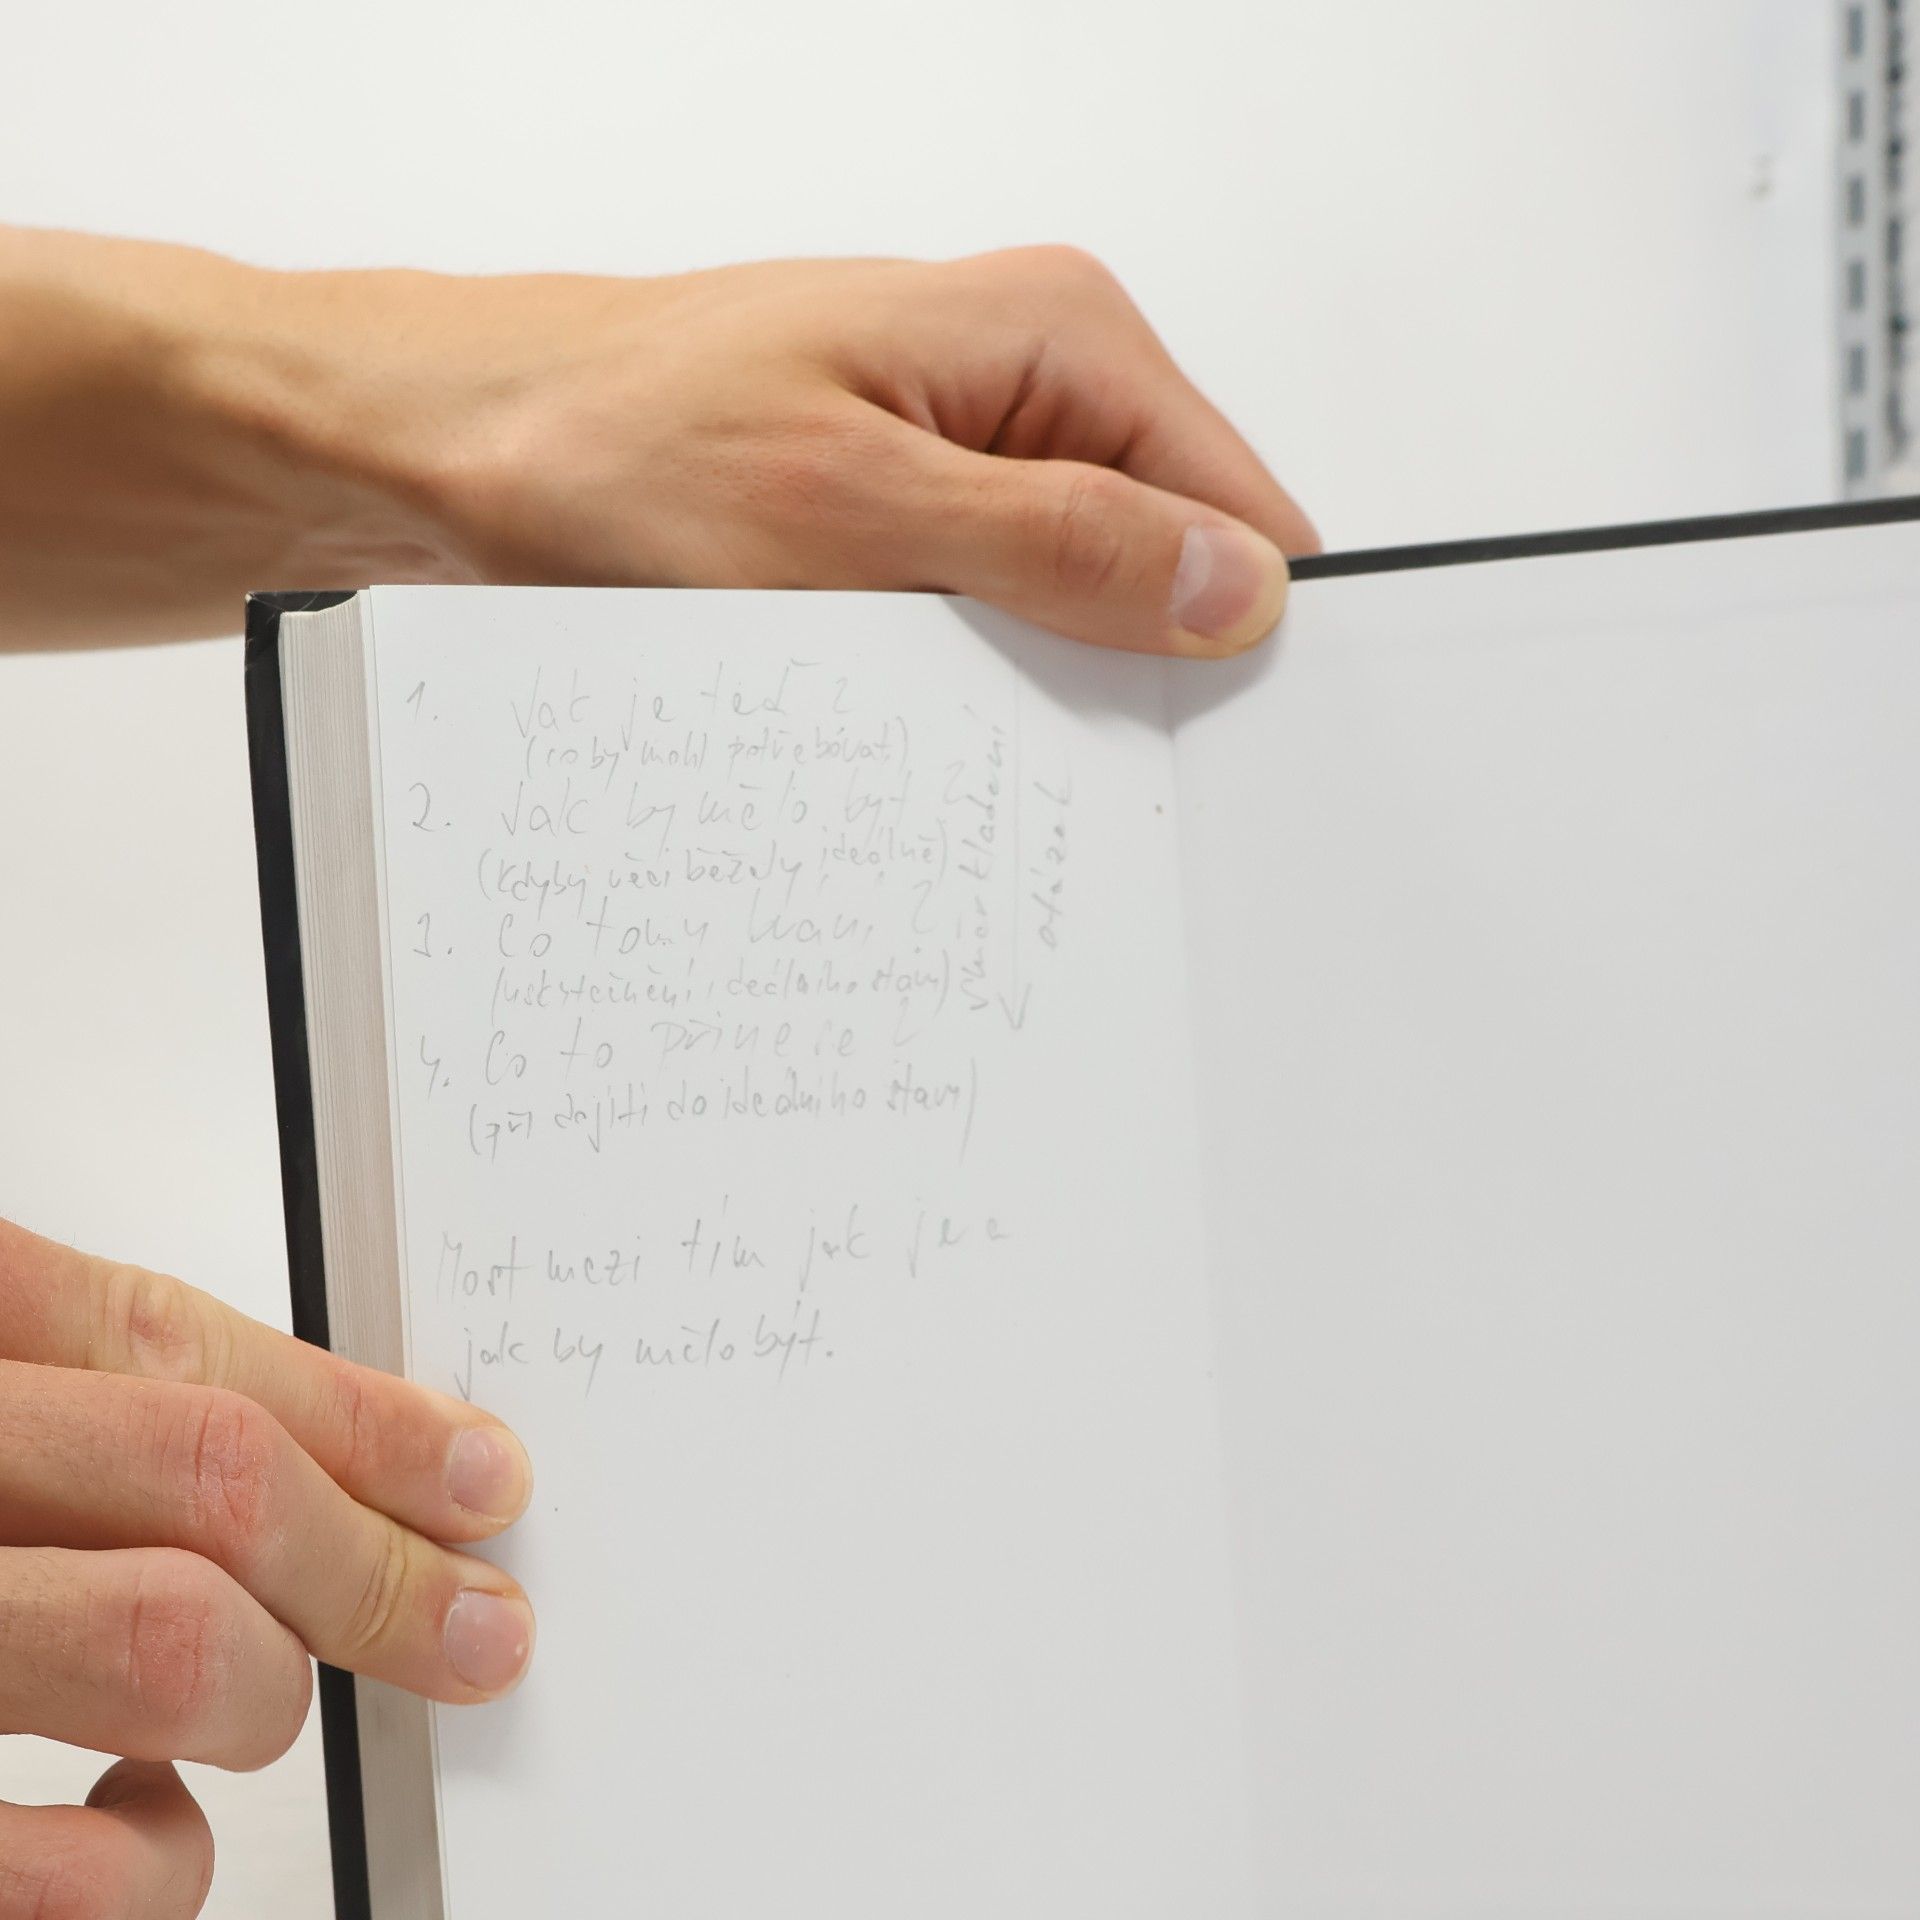 1. Jak je teď?
(co by mohl potřebovat)
2. Jak by mělo být?
(kdyby věci běžely ideálně)
3. Co tomu brání?
(uskutečnění ideálního stavu)
4. Co to přinese?
(při dojití do ideálního stavu)
Směr kladení
otázek
Most mezi tím jak je a
jak by mělo být.